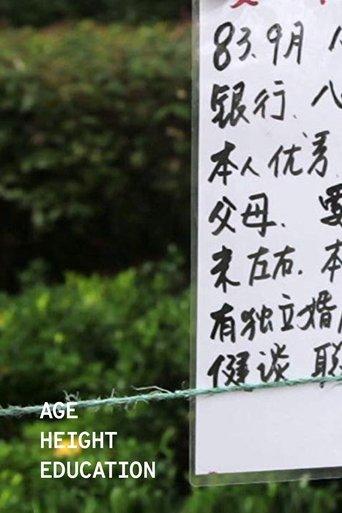 83.9月
银行、八
本人优秀
父母、要
米左右.本
有独立婚
健谈 联
AGE
HEIGHT
EDUCATION